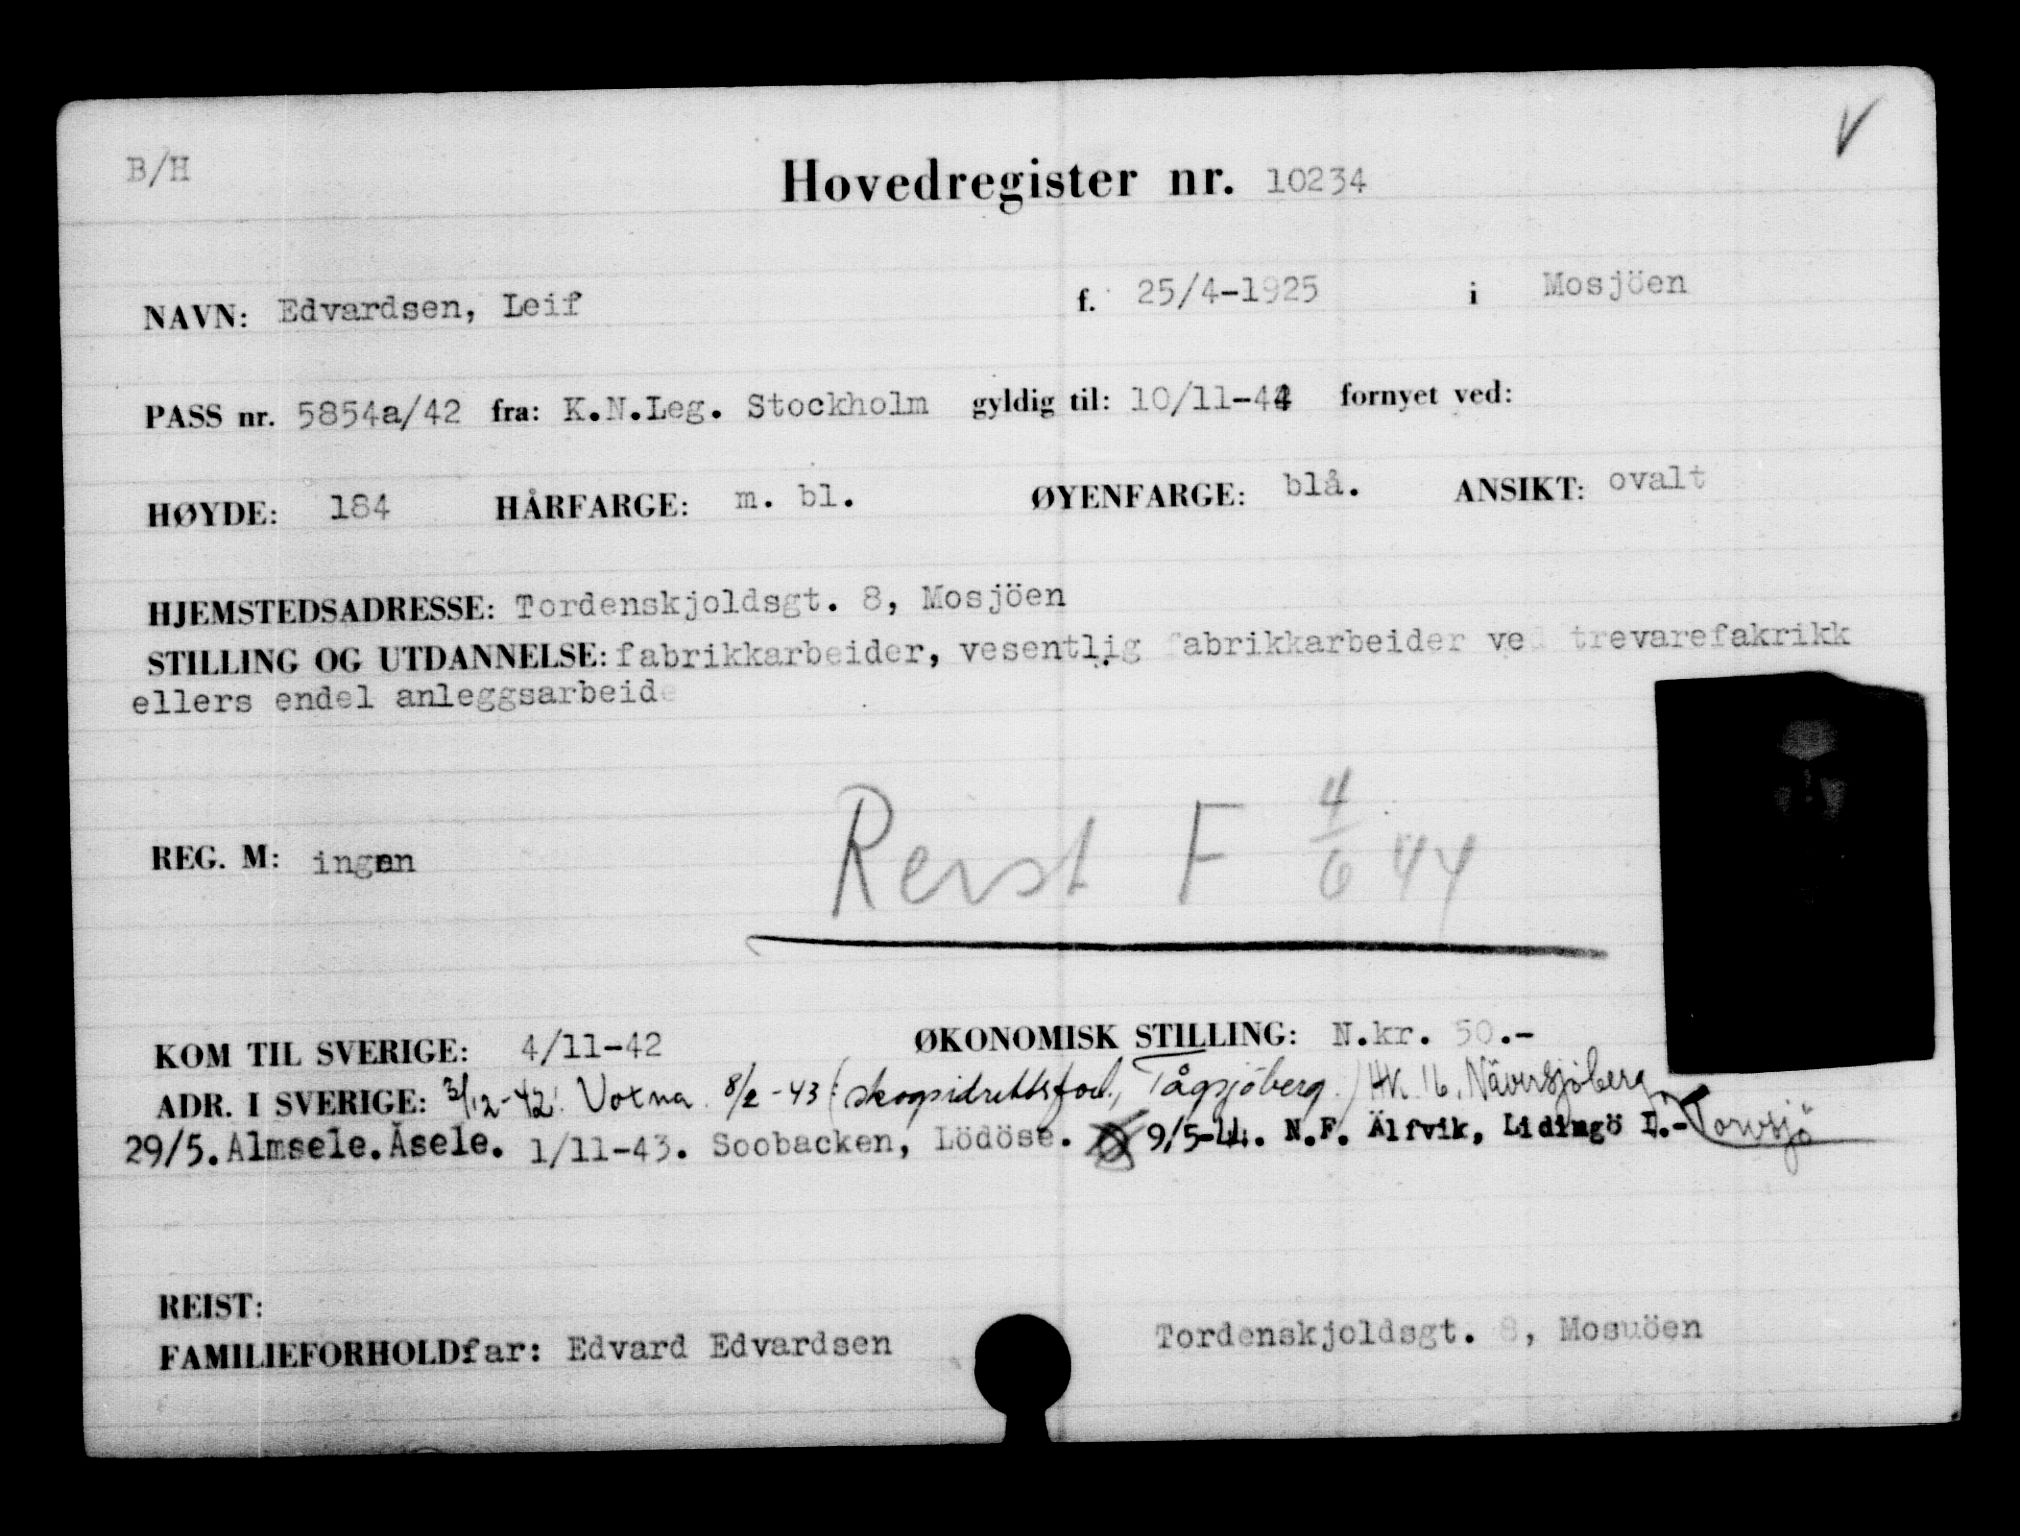 B/H
Hovedregister nr. 10234
NAVN: Edvardsen, Leif f. 25/4-1925 i Mosjöen
PASS nr. 5854a/42 fra: K.N.Leg. Stockholm gyldig til: 10/11-44 fornyet ved:
HØYDE: 184 HÅRFARGE: m. bl. ØYENFARGE: blå. ANSIKT: ovalt
HJEMSTEDSADRESSE: Tordenskjoldsgt. 8, Mosjöen
STILLING OG UTDANNELSE: fabrikkarbeider, vesentlig fabrikkarbeider ved trevarefakrikk
ellers endel anleggsarbeide
REG. M: ingen
Reist F 4/6 44
KOM TIL SVERIGE: 4/11-42 ØKONOMISK STILLING: N.kr. 50.-
ADR. I SVERIGE: 3/12-42. Votna. 8/2-43 (: Tågsjöberg.) HK. 16. Näversjöberg,
29/5. Almsele. Åsele. 1/11-43. Soobacken, Lödöse. 9/5-44. N.F. Älfvik, Lidingö I.- Torvsjö
REIST:
FAMILIEFORHOLD far: Edvard Edvardsen Tordenskjoldsgt. 8, Mosuöen